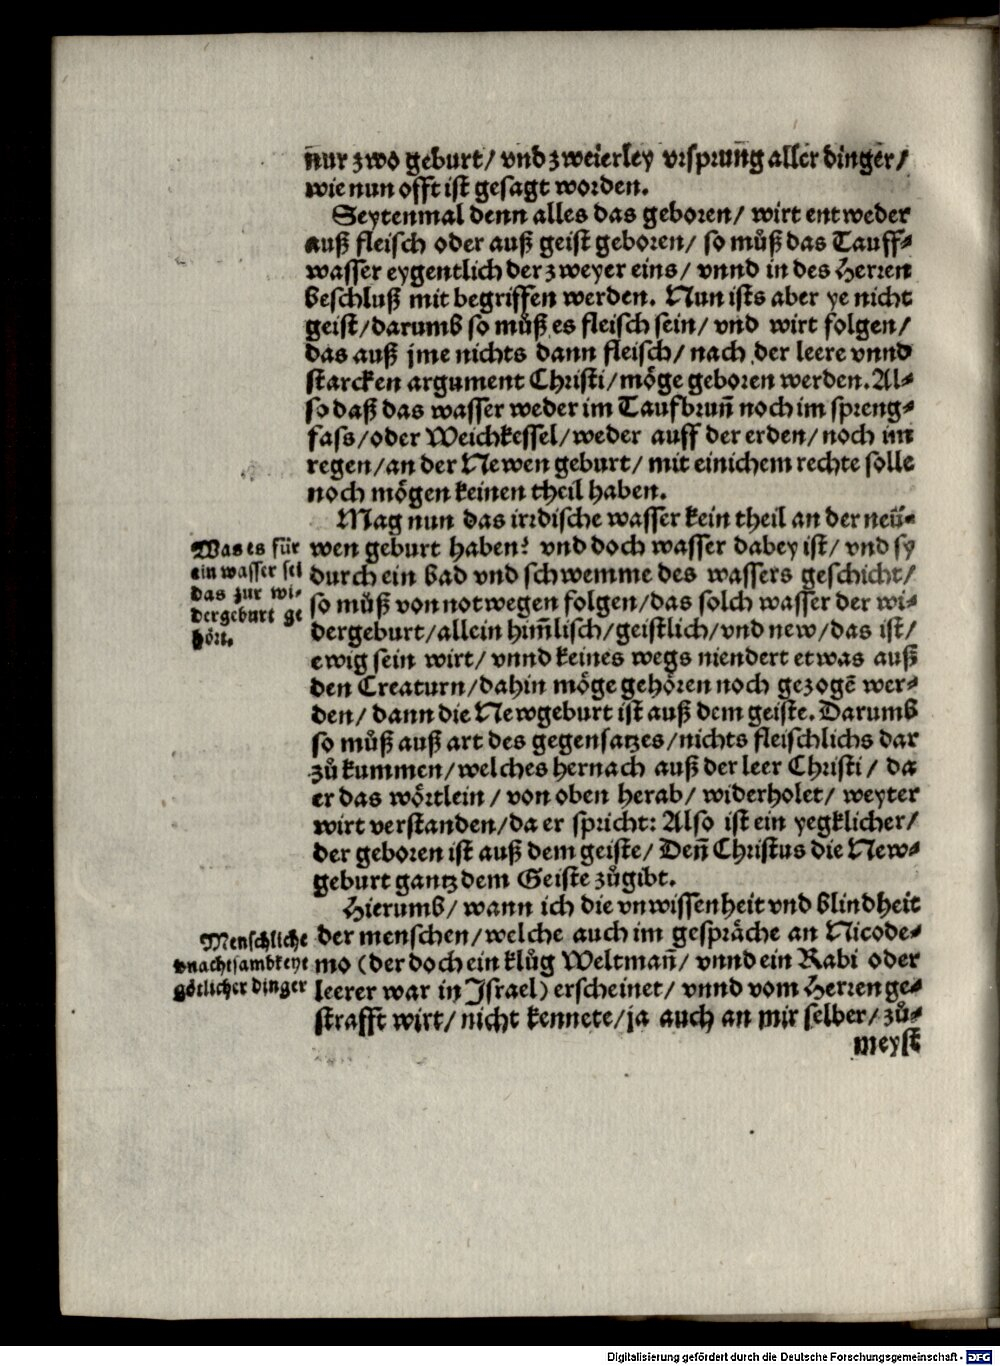 nur zwo geburt/ vnd zweierley vrsprung aller dinger/
wie nun offt ist gesagt worden.
Seytenmal denn alles das geboren/ wirt entweder
auß fleisch oder auß geist geboren/ so můß das Tauff-
wasser eygentlich der zweyer eins/ vnnd in des Herren
beschluß mit begriffen werden. Nun ists aber ye nicht
geist/darumb so můß es fleisch sein/ vnd wirt folgen/
das auß jme nichts dann fleisch/ nach der leere vnnd
starcken argument Christi/möge geboren werden. Al-
so daß das wasser weder im Taufbrun̄ noch im spreng-
fass/oder Weichkessel/weder auff der erden/ noch im
regen/an der Newen geburt/ mit einichem rechte solle
noch mögen keinen theil haben.
Mag nun das irrdische wasser kein theil an der neü-
wen geburt haben? vnd doch wasser dabey ist/ vnd sy
durch ein bad vnd schwemme des wassers geschicht/
so můß von notwegen folgen/das solch wasser der wi-
dergeburt/allein him̄lisch/geistlich/vnd new/das ist/
ewig sein wirt/ vnnd keines wegs niendert etwas auß
den Creaturn/dahin möge gehören noch gezogē wer-
den/ dann die Newgeburt ist auß dem geiste. Darumb
so můß auß art des gegensatzes/nichts fleischlichs dar
zů kummen/welches hernach auß der leer Christi/ da
er das wörtlein/ von oben herab/ widerholet/ weyter
wirt verstanden/da er spricht: Also ist ein yegklicher/
der geboren ist auß dem geiste/ Den̄ Christus die New-
geburt gantz dem Geiste zůgibt.
Hierumb/ wann ich die vnwissenheit vnd blindheit
der menschen/welche auch im gespräche an Nicode-
mo (der doch ein klůg Weltman̄/ vnnd ein Rabi oder
leerer war in Jsrael) erscheinet/ vnnd vom Herren ge-
strafft wirt/ nicht kennete/ja auch an mir selber/ zů-
meyst
Was es für
ein wasser sei
das zur wi-
dergeburt ge
hört.
Menschliche
vnachtsambkeyt
götlicher dinger
Digitalisierung gefördert durch die Deutsche Forschungsgemeinschaft - DFG